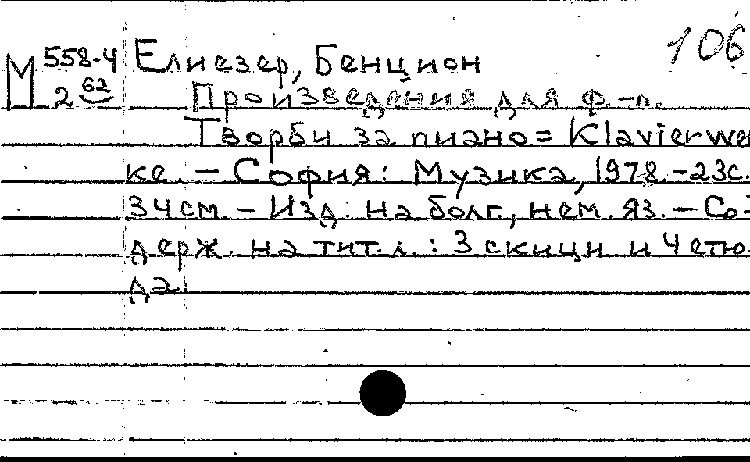 М 558-4 Елиезер, Бенцион 106
2 62 Произведения для ф.-п.
Творби за пиано = Klavierwer
ke. - София: Музика, 1978. - 23с.
34см. - Изд. на болг., нем. яз. - Со-
держ. на тит. л.: 3 скици и 4 етю-
да.